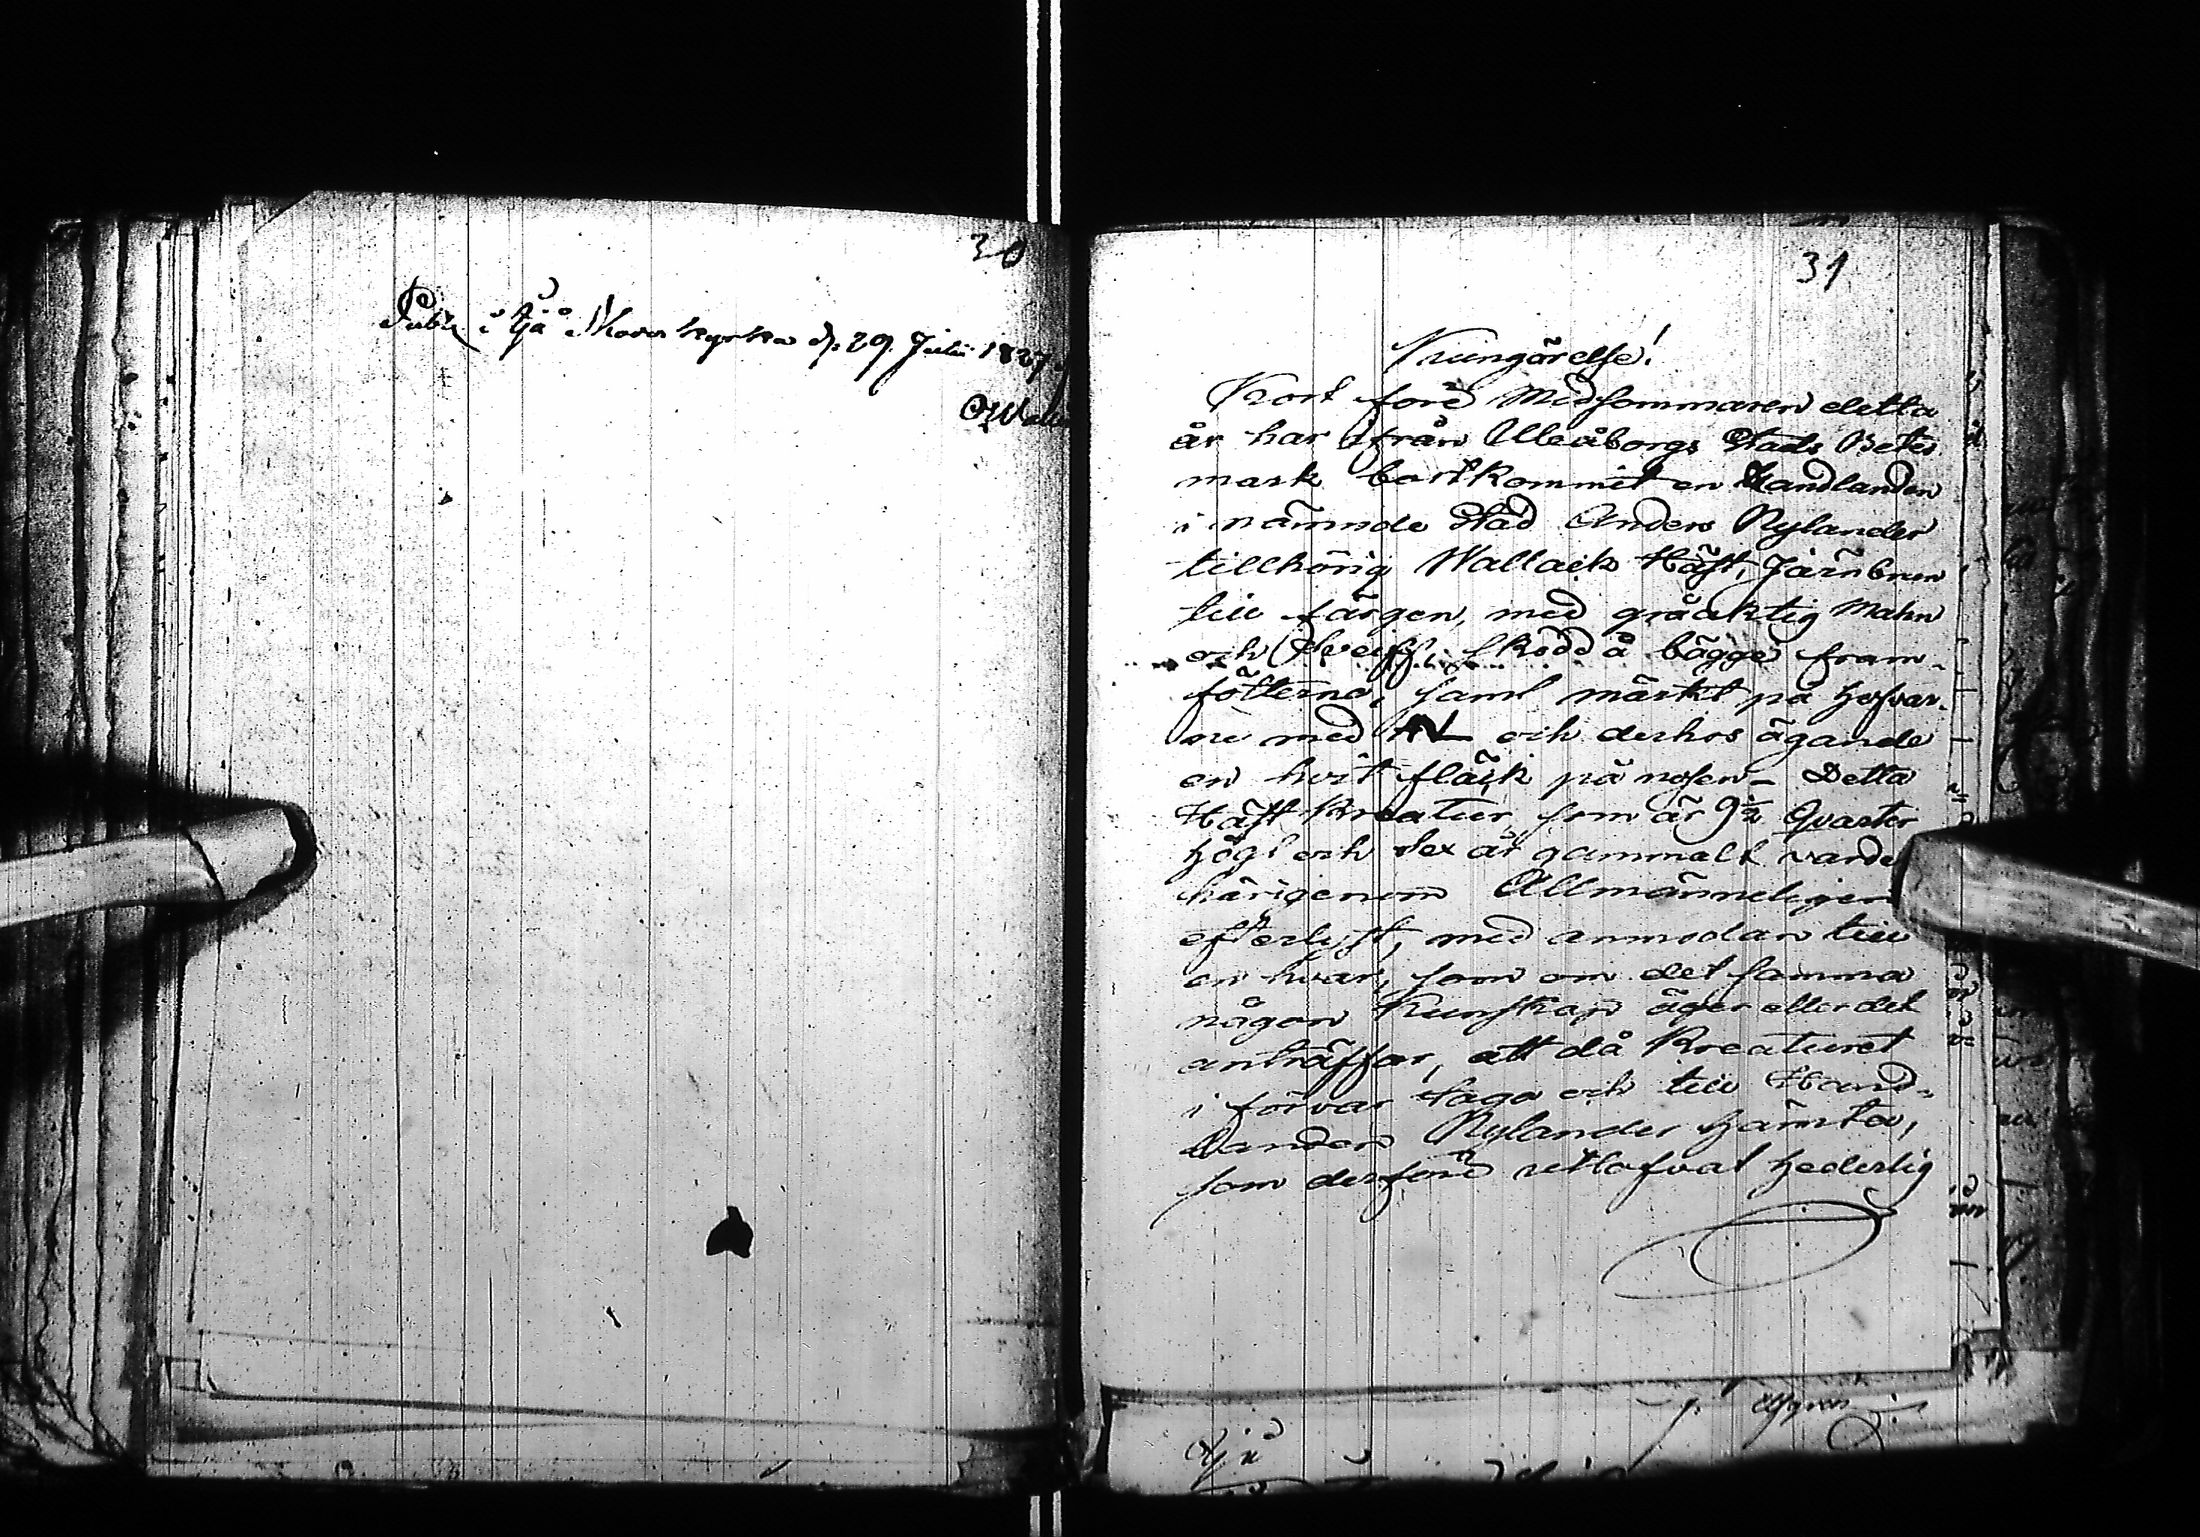 30
Publ i Ijå Moderkyrka d. 29 Julii 1827.
31
Kungörelse!
Kort före Midsommaren detta
år har ifrån Uleåborgs Stads Betes
mark bortkommit en Handlanden
i nämnde Stad Anders Nylander
tillhörig Wallack Häst, Järnbrun
till färgen, med gråaktig Mahn
och Sveif, skodd å bägge fram-
fötterna, samt märkt på hofvar-
ne med AN och derhos ägande
en hvit fläck på nosen - Detta
Häst Kreatur som är 9½ Qvarter
högt och sex år gammalt varder
härigenom Allmänneligen
efterlyst, med anmodan till
en hvar, som om det samma
någon Kunskap äger eller det
anträffar, att då Kreaturet
i förvar taga och till Hand-
landen Nylander hämta,
som derföre utlofvat hederlig